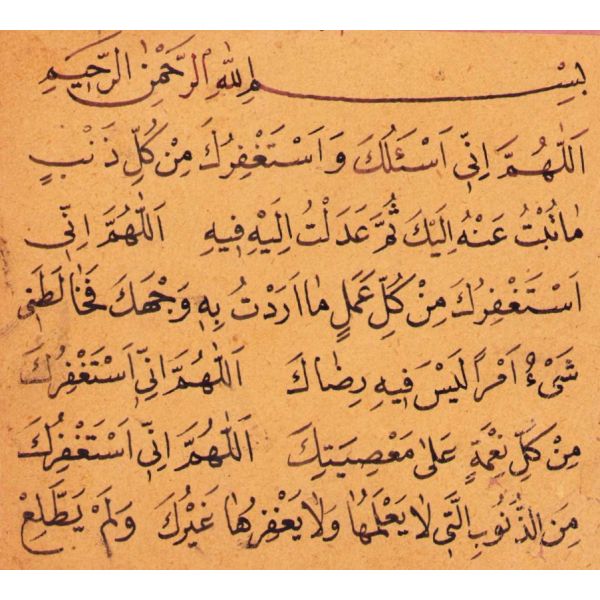 بِسْمِ اللّٰهِ الرَّحْمٰنِ الرَّحِيمِ
اَللّٰهُمَّ اِنِّى اَسْئَلُكَ وَ اَسْتَغْفِرُكَ مِنْ كُلِّ ذَنْبٍ
مٰا تُبْتُ عَنْهُ اِلَيْكَ ثُمَّ عَدَلْتُ اِلَيْهِ فِيهِ اَللّٰهُمَّ اِنِّى
اَسْتَغْفِرُكَ مِنْ كُلِّ عَمَلٍ مٰا اَرَدْتُ بِهِ وَجْهَكَ فَخٰالَطَنِى
شَىْءٌ اَمْراً لَيْسَ فِيهِ رِضٰاكَ اَللّٰهُمَّ اِنِّى اَسْتَغْفِرُكَ
مِنْ كُلِّ نِعْمَةٍ عَلٰى مَعْصِيَتِكَ اَللّٰهُمَّ اِنِّى اَسْتَغْفِرُكَ
مِنَ الذُّنُوبِ الَّتِى لٰا يَعْلَمُهٰا وَلٰا يَغْفِرُهٰا غَيْرُكَ وَلَمْ يَطَّلِعْ